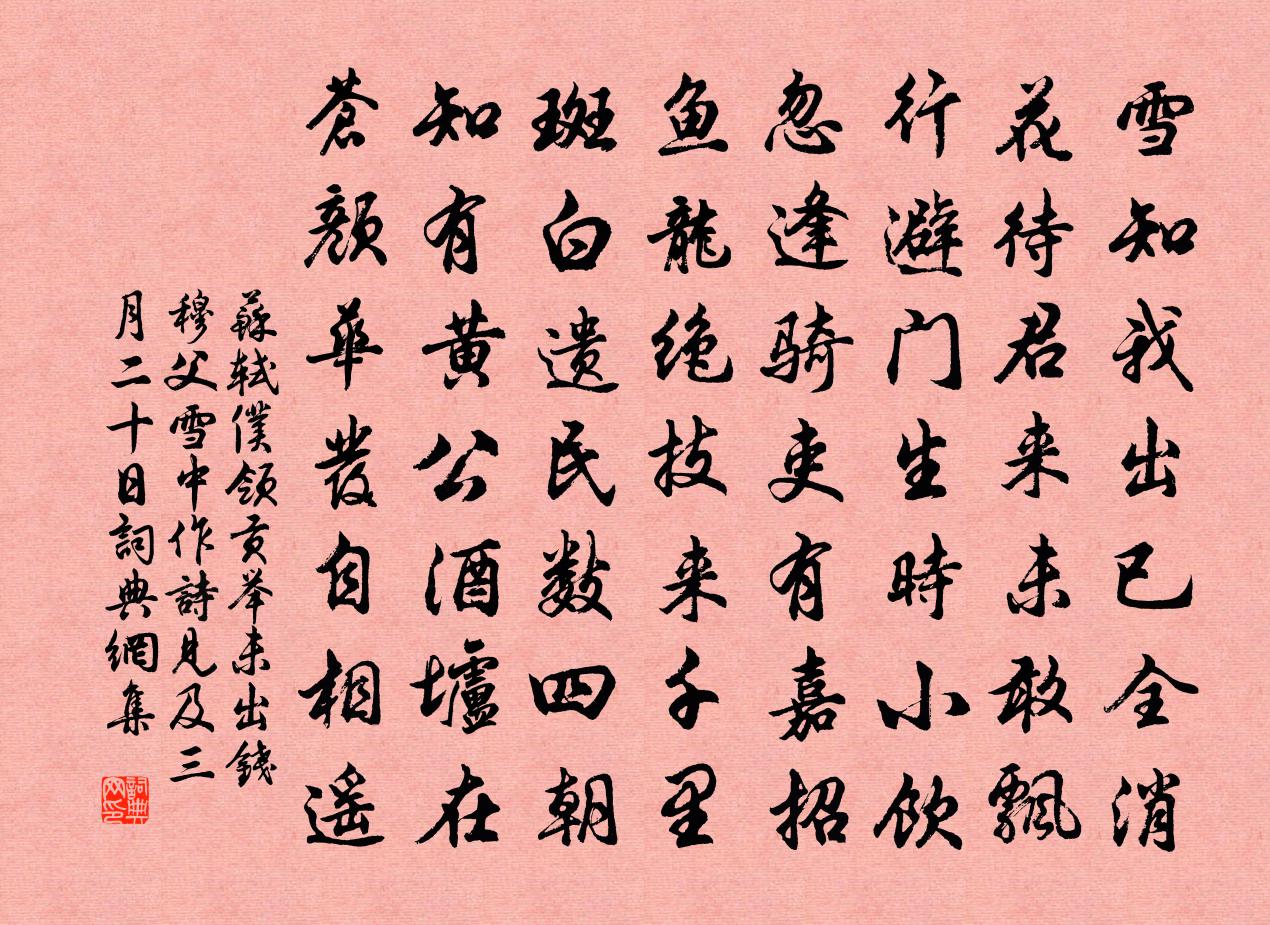 雪知我出已全消
花待君来未敢飘
行避门生時小饮
忽逢骑吏有嘉招
鱼龍绝技来千里
斑白遗民数四朝
知有黄公酒壚在
蒼颜華发自相遥
蘇轼僕领贡举未出錢
穆父雪中作詩見及三
月二十日詞典網集
詞典网印